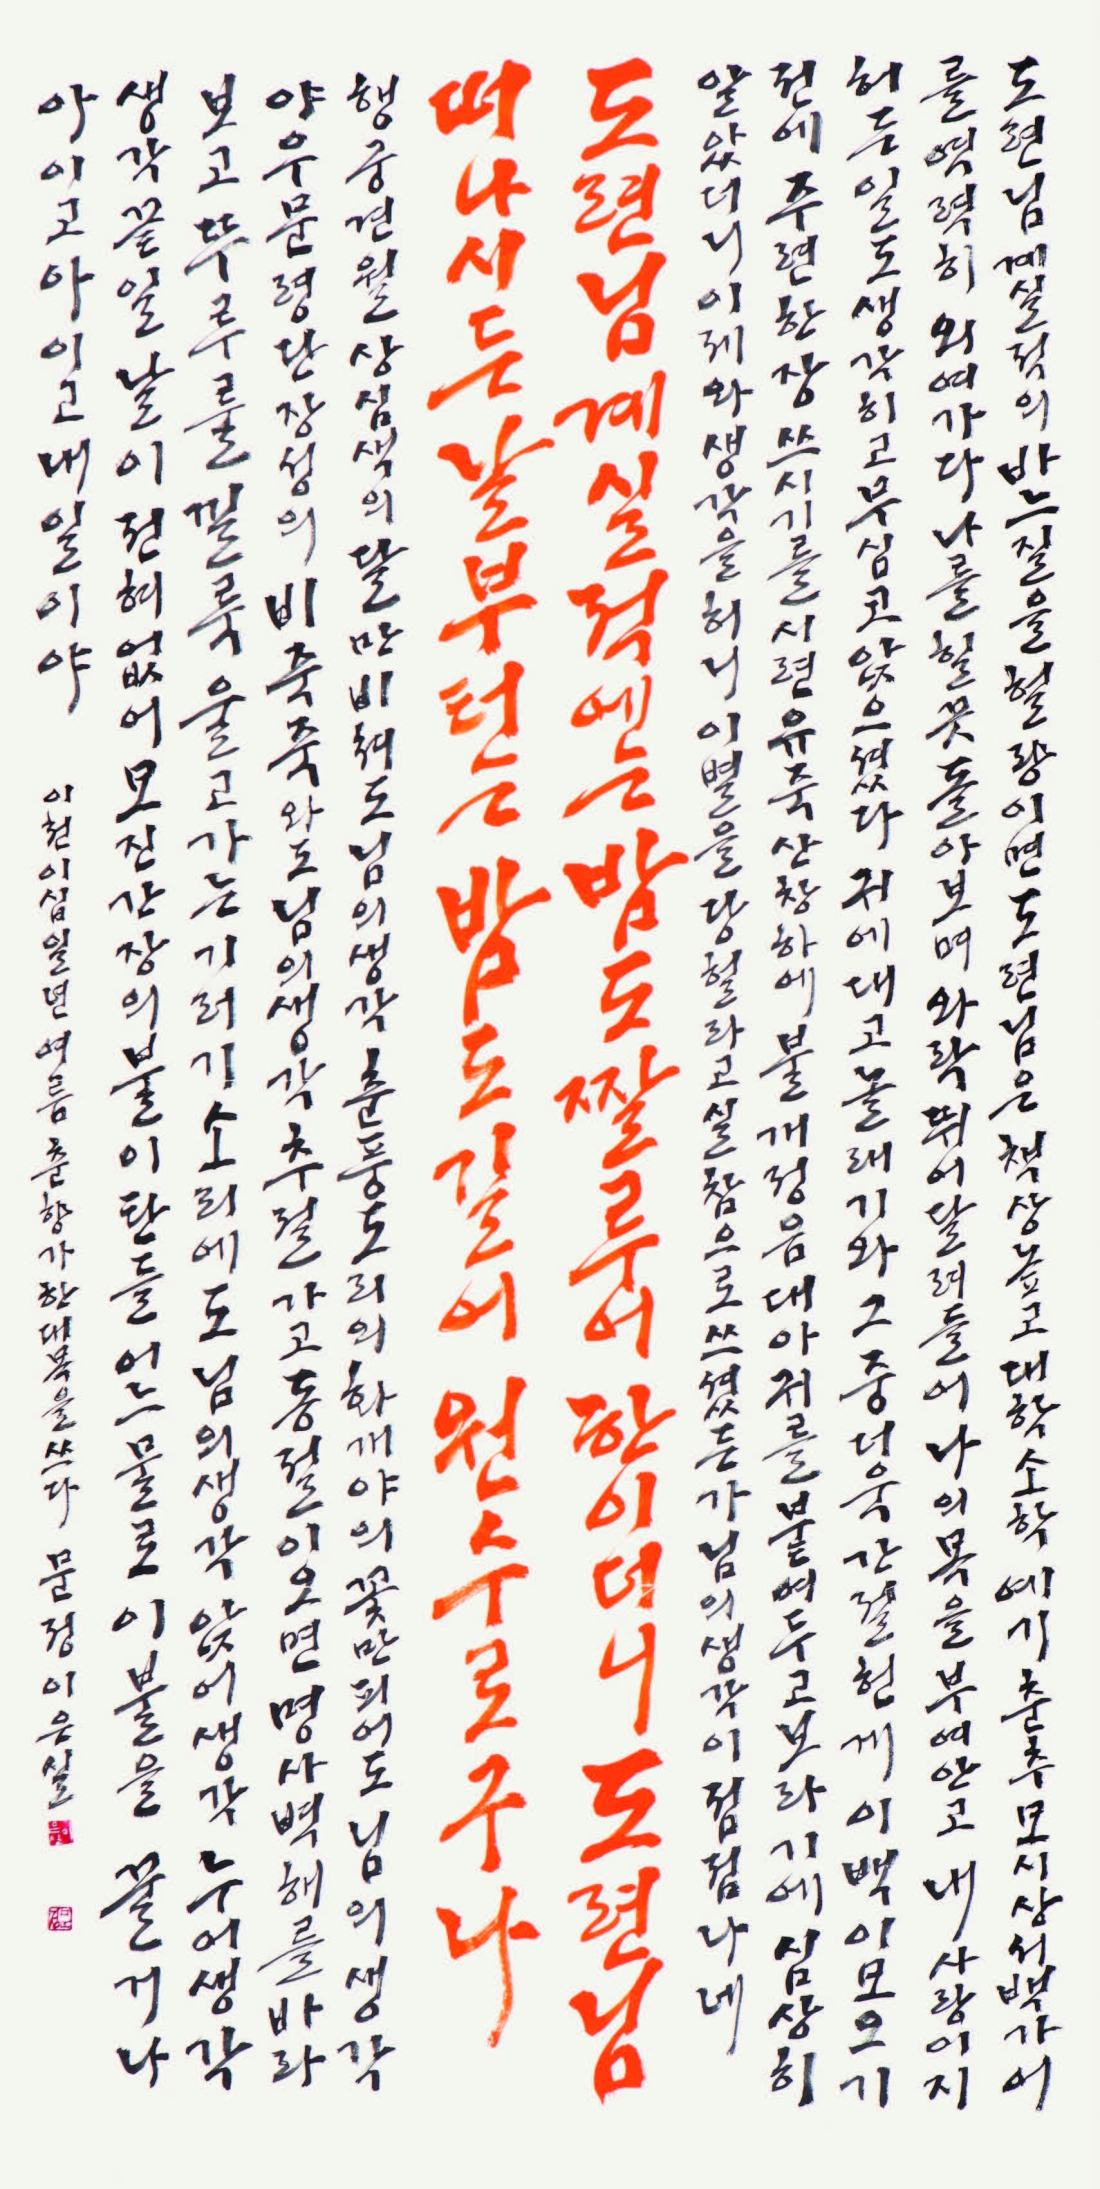 도련님 계실적의 바느질을 헐량이면 도련님은 책상 놓고 대학 소학 예기 춘추 모시 상서 백가어
를 역력히 외여가다 나를 힐끗 돌아보며 와락 뛰어 달려들어 나의 목을 부여안고 내 사랑이지
허든 일도 생각히고 무심고 앉으셨다 귀에 대고 놀래기와 그중 더욱 간절헌 게 이백이 모오기
전에 주련 한 장 쓰시기를 시련유죽산창하에 불개정음대아귀를 붙여두고 보라기에 심상히
알았더니 이제와 생각을 허니 이별을 당헐라고 실참으로 쓰셨든가 님의 생각이 점점 나네
도련님 계실적에는 밤도 짤루어 한이더니 도련님
떠나시든 날부터는 밤도 길어 원수로구나
행궁견월상심색의 달만 비춰도 님의 생각 춘풍도리의 화개야의 꽃만 피어도 님의 생각
야우문령단장성의 비 죽죽 와도 님의 생각 추절 가고 동절이 오면 명사벽해를 바라
보고 뚜루룰 낄룩 울고 가는 기러기 소리에도 님의 생각 앉어 생각 누어 생각
생각 끝일 날이 전혀 없어 모진 간장의 불이 탄들 어느 물로 이 불을 끌거나
아이고 아이고 내 일이야
이천이십일년 여름 춘향가 한 대목을 쓰다 문정 이은실